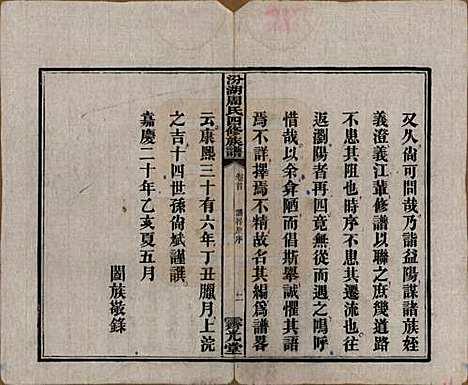 又久尙可問哉乃詣益陽謀諸族姪
義澄義江葺修譜以聯之庶幾道路
不患其阻也時序不患其遷流也以
返瀏陽者再四竟無從而遇之嗚呼
惜哉以余弇陋而倡斯舉誠懼其語
焉不詳擇焉不精故名其編爲譜畧
汾湖周氏四修族譜
卷首
譜
序
十一
霽光堂
云康熙三十有六年丁丑臘月上浣
之吉十四世孫尙斌謹譔
嘉慶二十年乙亥夏五月
闔族敬錄